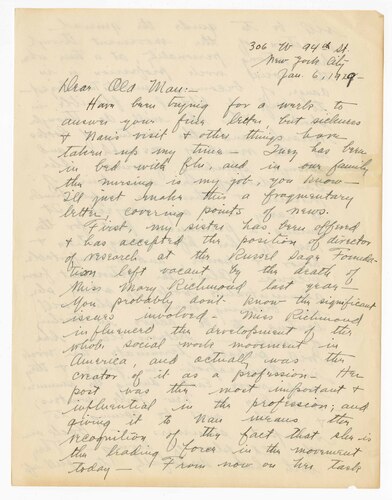 306 W 94th St.
New York City
Jan 6, 1929
Dear Old Man:-
Have been trying for a week to
answer your fine letter, but sickness
& Nan's visit & other things have
taken up my time - has been
in bed with flu, and in our family
the nursing is my job, you know -
I'll just make this a fragmentary
letter, covering points of news.
First, my sister has been offered
& has accepted the position of director
of research at the Russel Sage Founda-
tion left vacant by the death of
Miss Mary Richmond last year -
You probably don't know the significant
issues involved - Miss Richmond
influenced the development of the
whole social work movement in
America, and actually was the
creator of it as a profession - Her
post was the most important &
influential in the profession; and
giving it to Nan means the
recognition of the fact that she is
the leading force in the movement
today - From now on her task